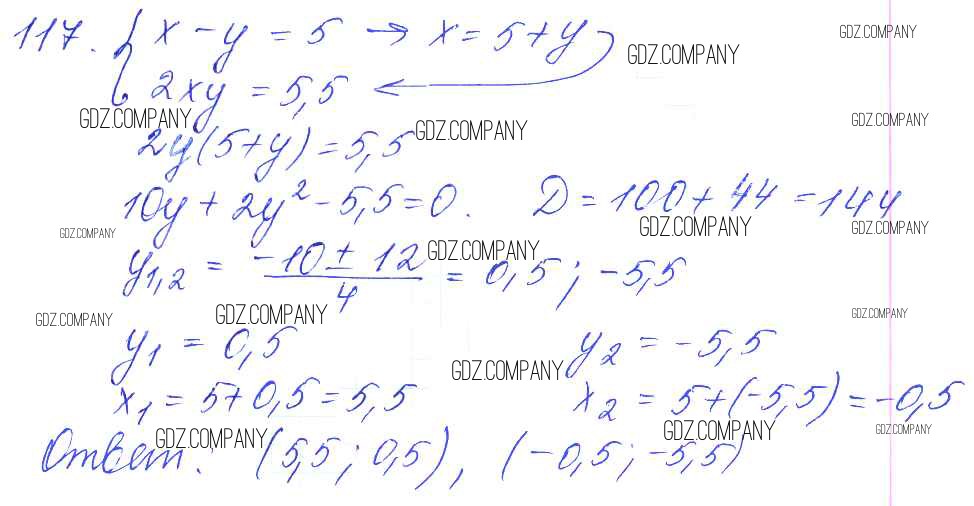 117. { x - y = 5 → x = 5 + y GDZ.COMPANY GDZ.COMPANY
2xy = 5,5 ←
GDZ.COMPANY GDZ.COMPANY GDZ.COMPANY
2y(5+y) = 5,5
10y + 2y² - 5,5 = 0. D = 100 + 44 = 144
GDZ.COMPANY GDZ.COMPANY GDZ.COMPANY GDZ.COMPANY
y₁,₂ = (-10 ± 12)/4 = 0,5 ; -5,5
GDZ.COMPANY GDZ.COMPANY GDZ.COMPANY
y₁ = 0,5 y₂ = -5,5
GDZ.COMPANY
x₁ = 5 + 0,5 = 5,5 x₂ = 5 + (-5,5) = -0,5
GDZ.COMPANY GDZ.COMPANY GDZ.COMPANY
Ответ: (5,5 ; 0,5), (-0,5 ; -5,5)